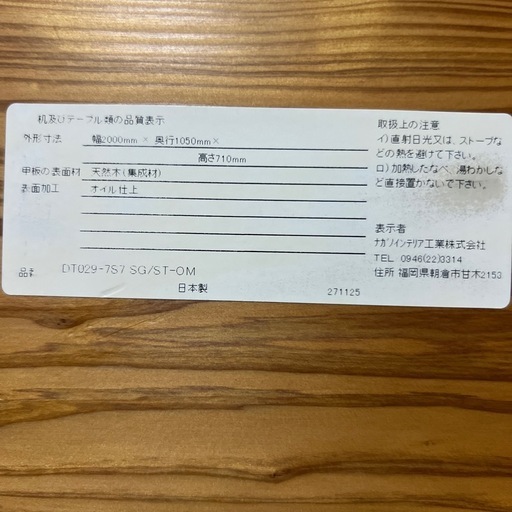 机及びテーブル類の品質表示
外形寸法 幅2000mm × 奥行1050mm×
高さ710mm
甲板の表面材 天然木(集成材)
表面加工 オイル仕上
品番 DT029-7S7 SG/ST-OM
日本製
271125
取扱上の注意
イ)直射日光又は、ストーブな
どの熱を避けて下さい。
ロ)加熱したなべ、湯わかしな
ど直接置かないで下さい。
表示者
ナガノインテリア工業株式会社
TEL 0946(22)3314
住所 福岡県朝倉市甘木2153